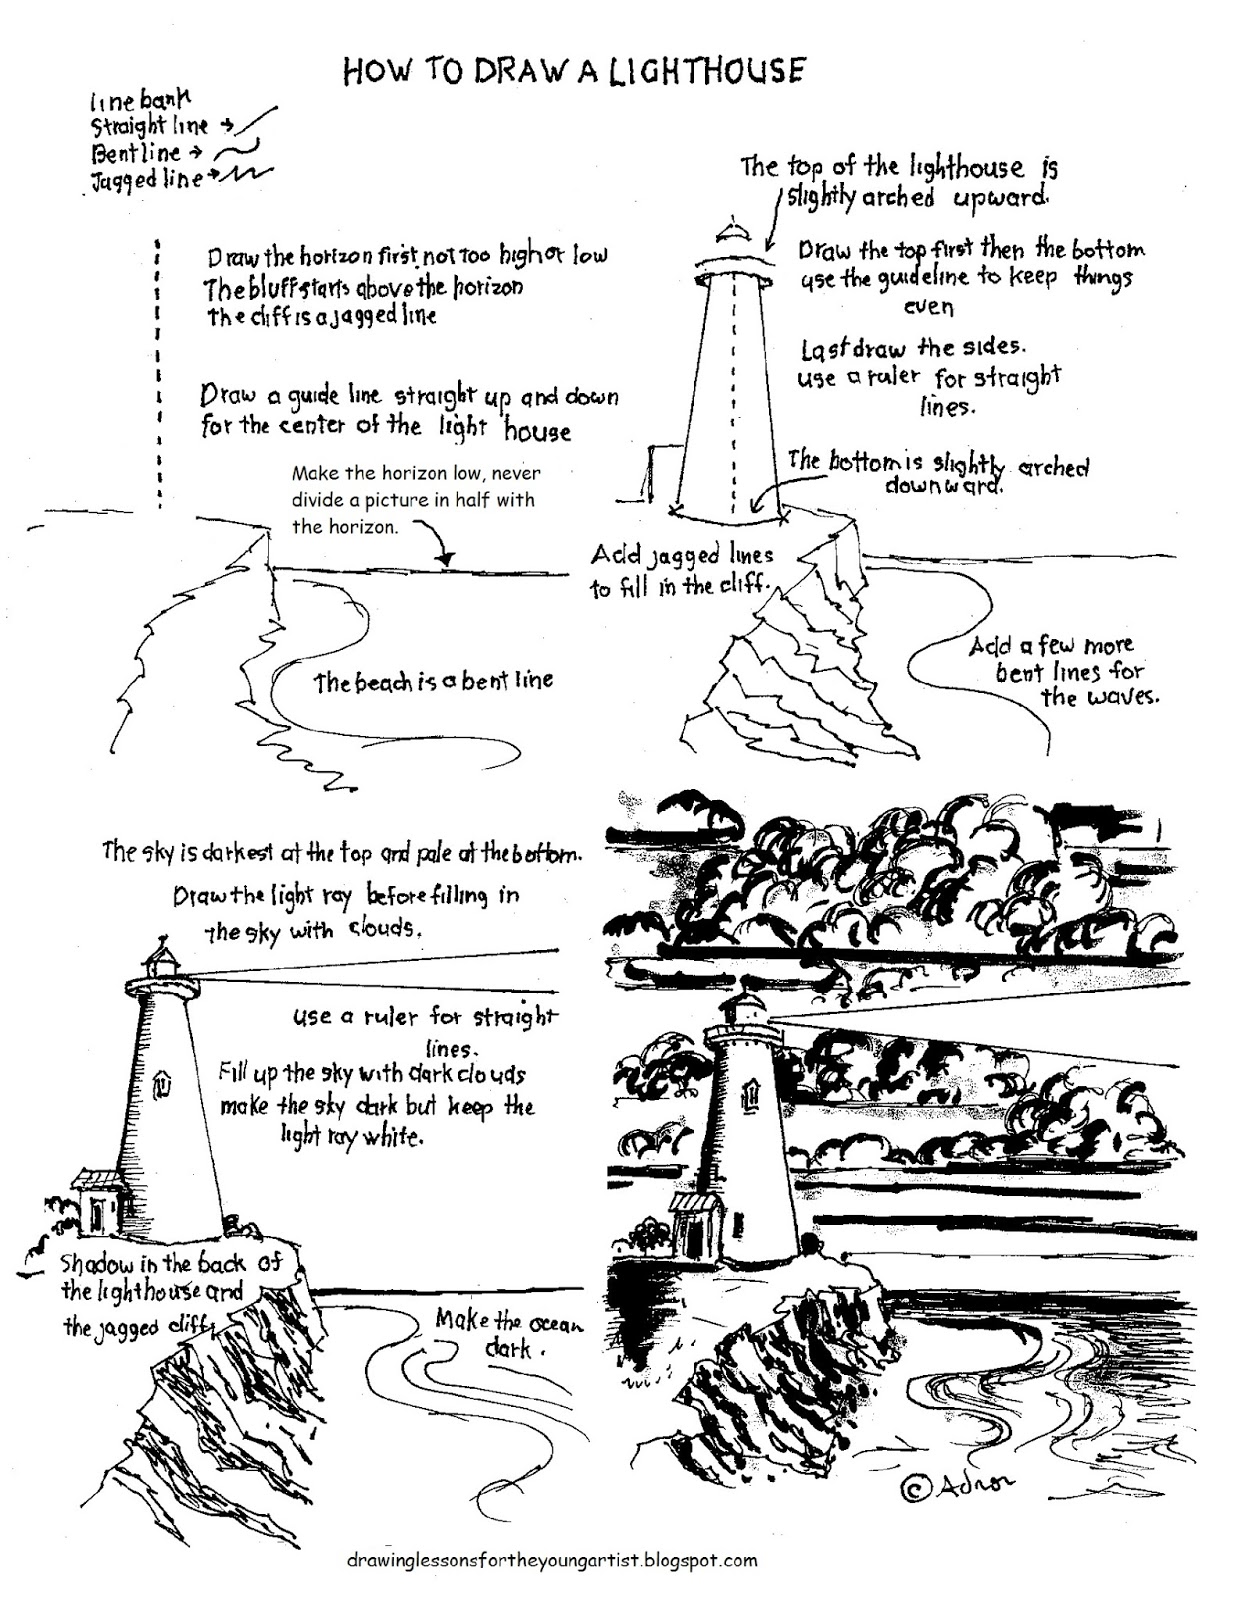 HOW TO DRAW A LIGHTHOUSE
line bank
Straight line
Bent line
Jagged line
Draw the horizon first, not too high or low
The bluff starts above the horizon
The cliff is a jagged line
Draw a guide line straight up and down
for the center of the light house
Make the horizon low, never
divide a picture in half with
the horizon.
The beach is a bent line
The top of the lighthouse is
slightly arched upward.
Draw the top first then the bottom
use the guideline to keep things
even
Last draw the sides.
use a ruler for straight
lines.
The bottom is slightly arched
downward.
Add jagged lines
to fill in the cliff.
Add a few more
bent lines for
the waves.
The sky is darkest at the top and pale at the bottom.
Draw the light ray before filling in
the sky with clouds.
use a ruler for straight
lines.
Fill up the sky with dark clouds
make the sky dark but keep the
light ray white.
Shadow in the back of
the lighthouse and
the jagged cliff
Make the ocean
dark.
© Adron
drawinglessonsfortheyoungartist.blogspot.com